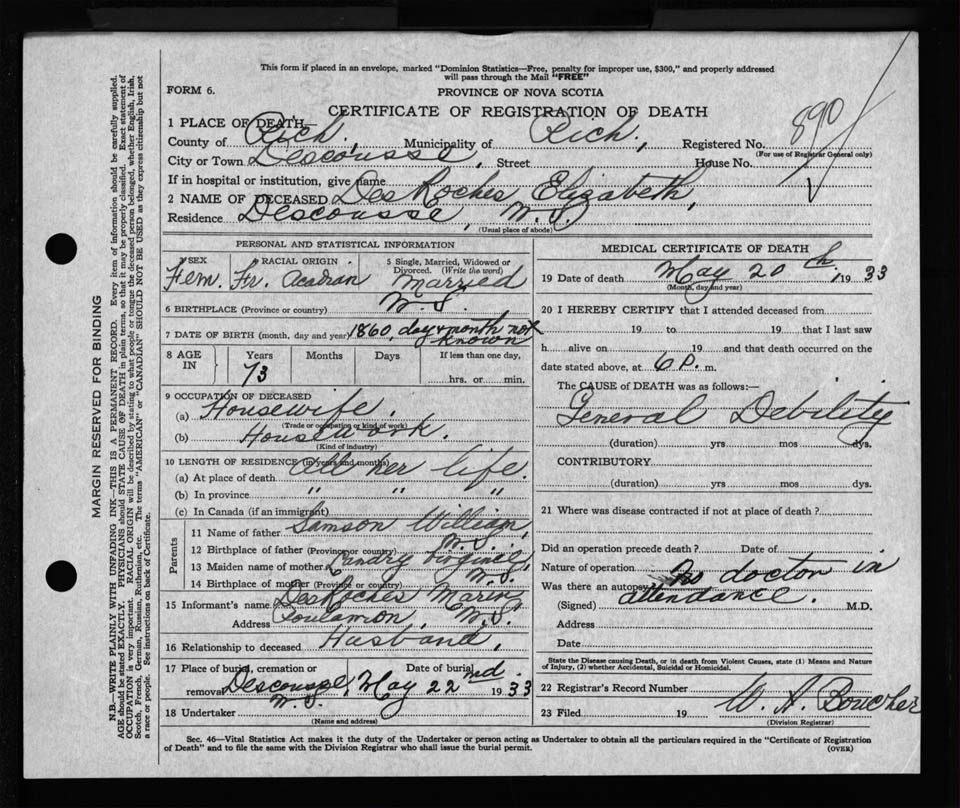 This form if placed in an envelope, marked "Dominion Statistics—Free, penalty for improper use, $300," and properly addressed
will pass through the Mail "FREE"
FORM 6.
PROVINCE OF NOVA SCOTIA
CERTIFICATE OF REGISTRATION OF DEATH
890
1 PLACE OF DEATH—
County of Rich., Municipality of Rich., Registered No.
(For use of Registrar General only)
City or Town Descousse, Street House No.
If in hospital or institution, give name
2 NAME OF DECEASED DesRoches Elizabeth,
Residence Descousse, N.S.
(Usual place of abode)
PERSONAL AND STATISTICAL INFORMATION
SEX
Fem.
RACIAL ORIGIN
Fr. Acadian
5 Single, Married, Widowed or
Divorced. (Write the word)
Married
6 BIRTHPLACE (Province or country) N.S.
7 DATE OF BIRTH (month, day and year) 1860, day & month not
known
8 AGE
IN
Years
73
Months
Days
If less than one day,
hrs. or min.
9 OCCUPATION OF DECEASED
(a) Housewife,
(Trade or occupation or kind of work)
(b) Housework.
(Kind of industry)
10 LENGTH OF RESIDENCE (in years and months)
(a) At place of death all her life.
(b) In province " " "
(c) In Canada (if an immigrant)
Parents
11 Name of father Samson William,
12 Birthplace of father (Province or country) N.S.,
13 Maiden name of mother Landry
14 Birthplace of mother (Province or country) N.S.
15 Informant's name DesRoches Marin,
Address Poulamon, N.S.
16 Relationship to deceased Husband,
17 Place of burial, cremation or
removal Descousse, N.S.
Date of burial
May 22nd. 1933
18 Undertaker
(Name and address)
MEDICAL CERTIFICATE OF DEATH
19 Date of death May 20th, 1933
(Month, day and year)
20 I HEREBY CERTIFY that I attended deceased from
19 to 19 that I last saw
h alive on 19 and that death occurred on the
date stated above, at 6 P. m.
The CAUSE of DEATH was as follows:—
General Debility
(duration) yrs mos dys.
CONTRIBUTORY
(duration) yrs mos dys.
21 Where was disease contracted if not at place of death?
Did an operation precede death? Date of
Nature of operation
Was there an autopsy No doctor in
attendance.
(Signed) M.D.
Address
Date
State the Disease causing Death, or in death from Violent Causes, state (1) Means and Nature
of Injury, (2) whether Accidental, Suicidal or Homicidal.
22 Registrar's Record Number
23 Filed 19 W. A. Boucher
(Division Registrar)
Sec. 46—Vital Statistics Act makes it the duty of the Undertaker or person acting as Undertaker to obtain all the particulars required in the "Certificate of Registration
of Death" and to file the same with the Division Registrar who shall issue the burial permit.
(OVER)
MARGIN RESERVED FOR BINDING
N.B.—WRITE PLAINLY WITH UNFADING INK—THIS IS A PERMANENT RECORD. Every item of information should be carefully supplied.
AGE should be stated EXACTLY. PHYSICIANS should STATE CAUSE OF DEATH in plain terms, so that it may be properly classified. Exact statement of
OCCUPATION is very important. RACIAL ORIGIN will be described by stating to what people or tongue the deceased person belonged, whether English, Irish,
Scotch, French, German, Russian, Ruthenian, etc. The terms "AMERICAN" or "CANADIAN" SHOULD NOT BE USED as they express citizenship but not
a race or people. See instructions on back of Certificate.